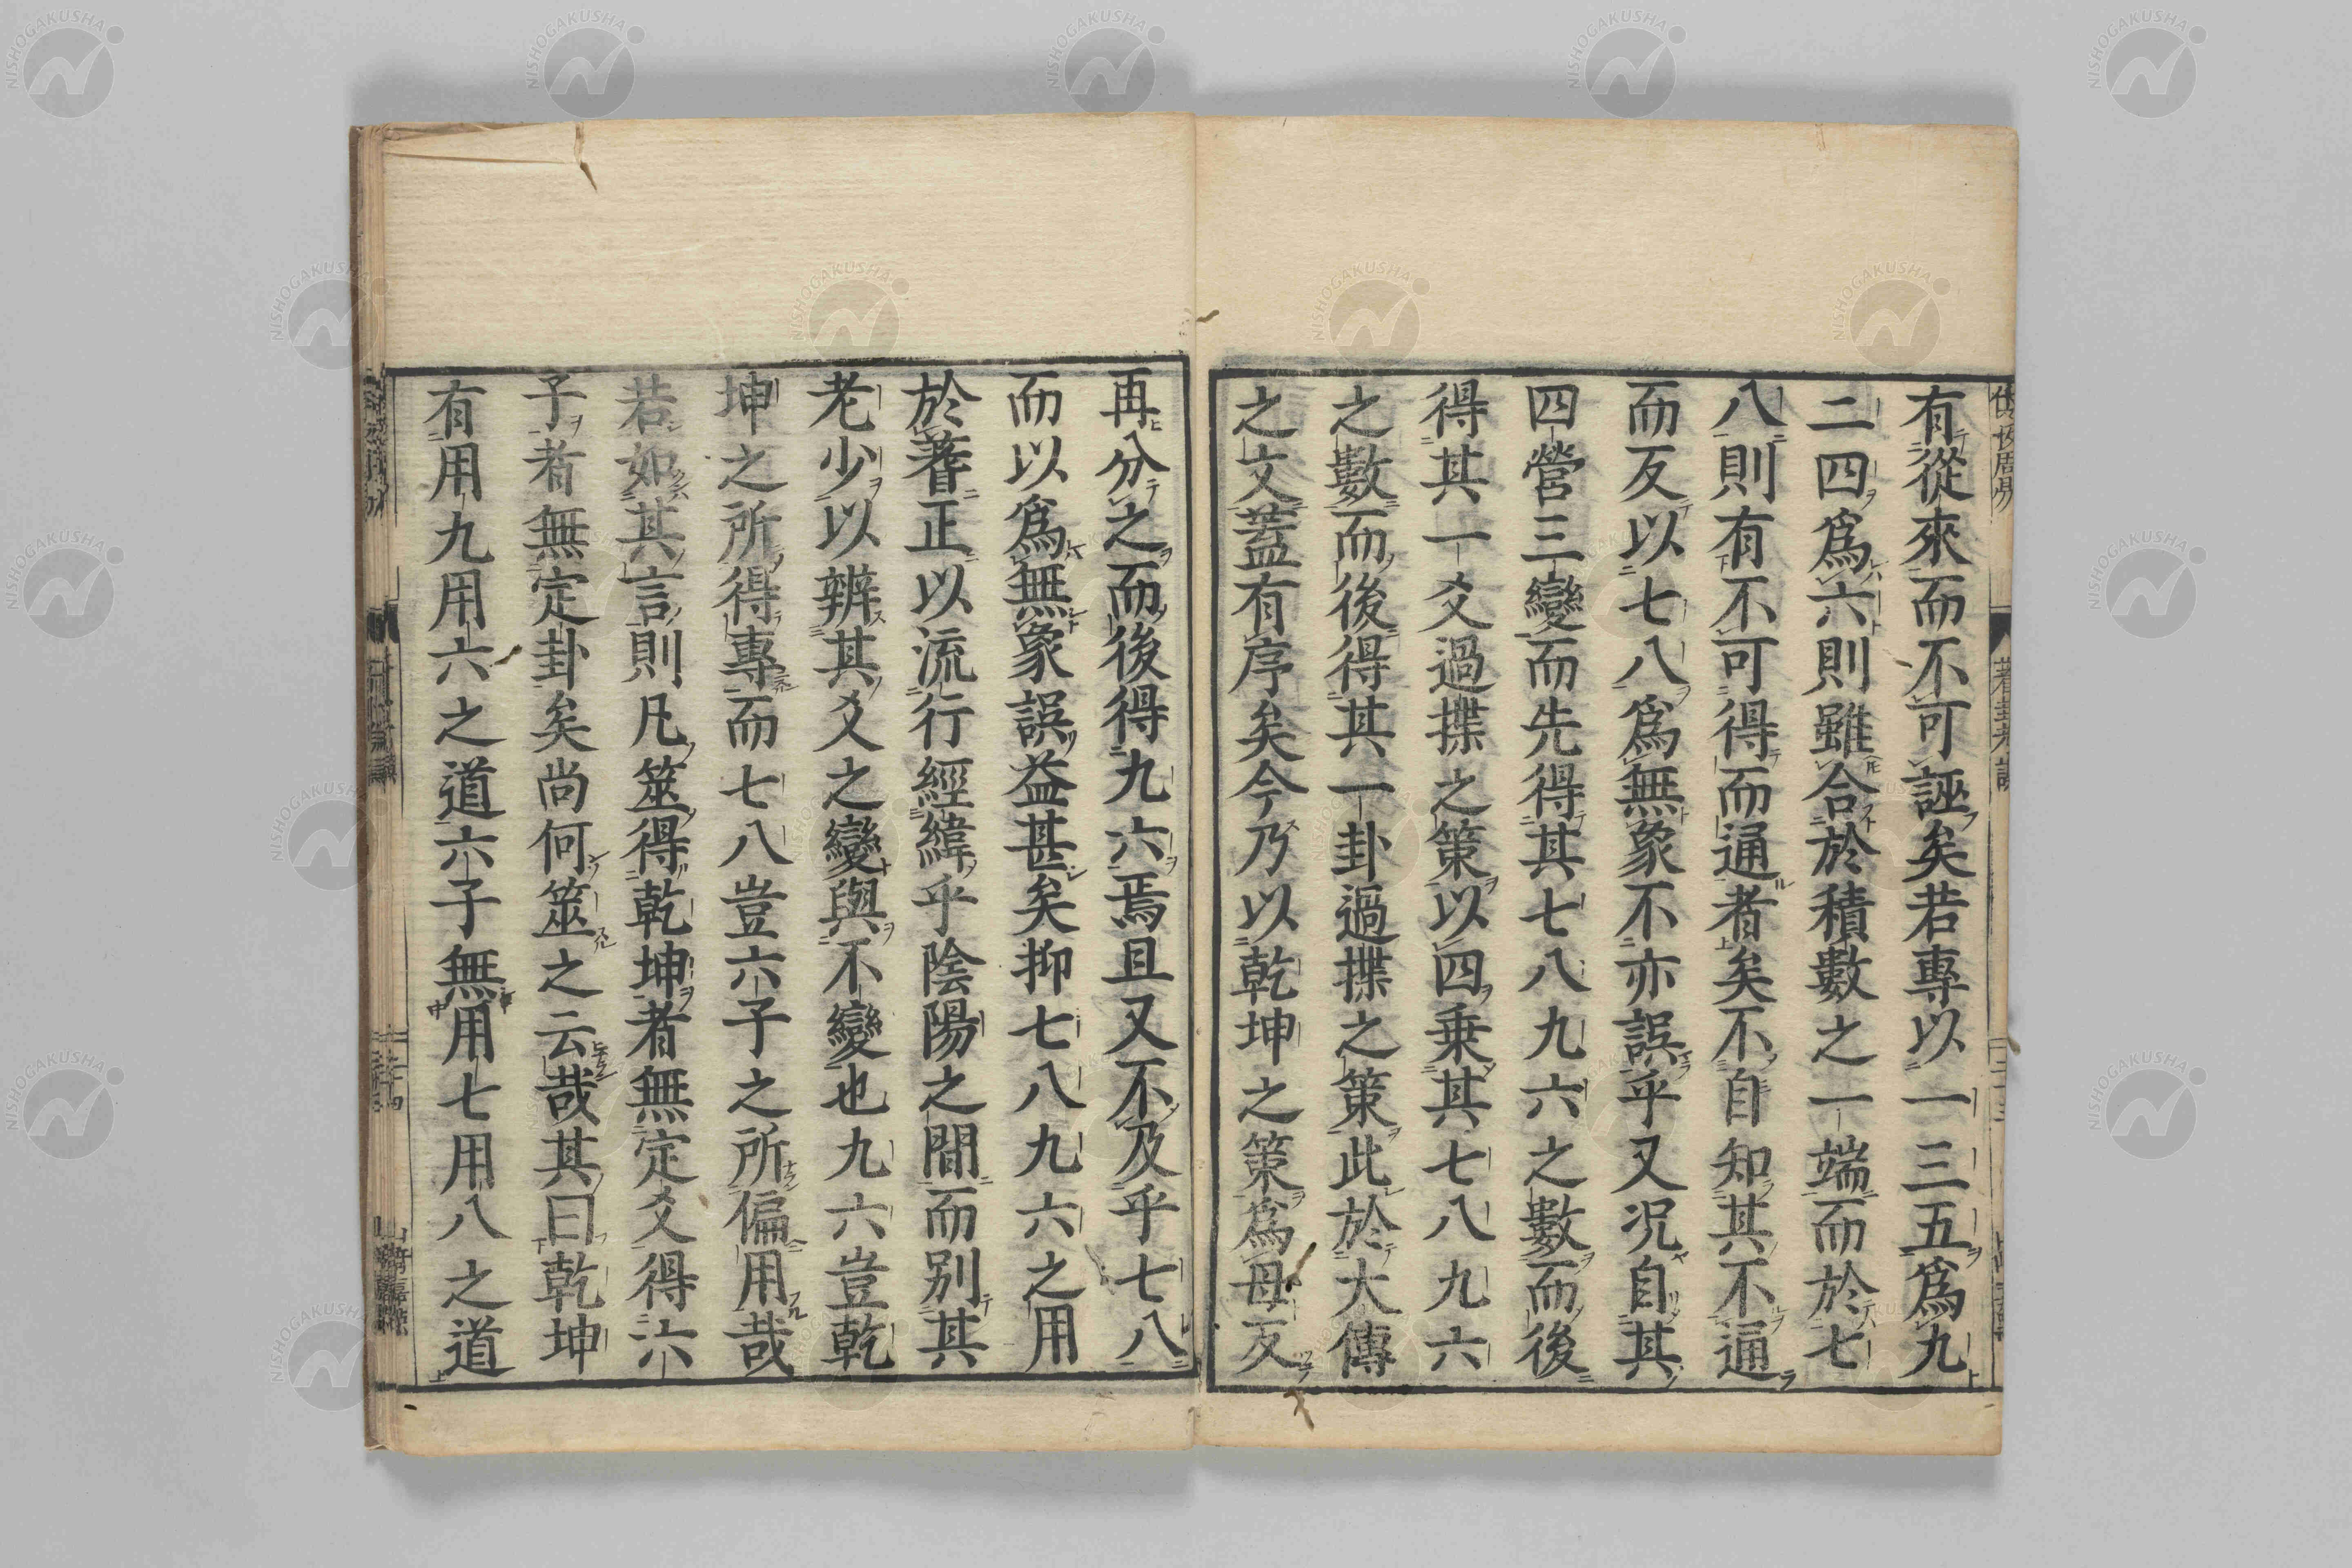 有從來而不可誣矣若專以一三五爲九
二四爲六則雖合於積數之一端而於七
八則有不可得而通者矣不自知其不通
而反以七八爲無象不亦誤乎又況自其
四營三變而先得其七八九六之數而後
得其一爻過揲之策以四乗其七八九六
之數而後得其一卦過揲之策此於大傳
之文蓋有序矣今乃以乾坤之策爲母反
再分之而後得九六焉且又不及乎七八
而以爲無象誤益甚矣抑七八九六之用
於蓍正以流行經緯乎陰陽之間而别其
老少以辨其爻之變與不變也九六豈乾
坤之所得專而七八豈六子之所偏用哉
若如其言則凡筮得乾坤者無定爻得六
子者無定卦矣尚何筮之云哉其曰乾坤
有用九用六之道六子無用七用八之道
NISHOGAKUSHA